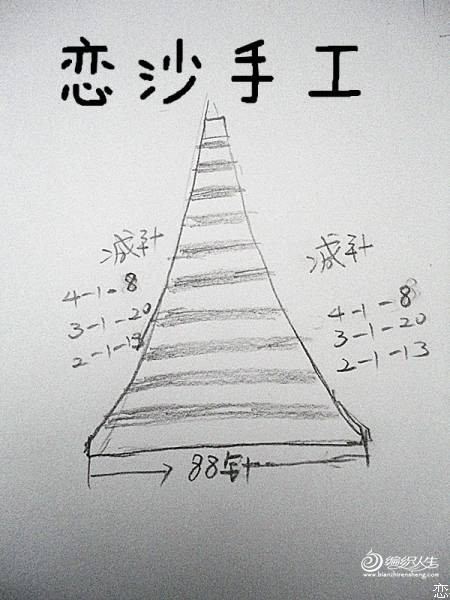 恋沙手工
减针
4-1-8
3-1-20
2-1-13
减针
4-1-8
3-1-20
2-1-13
88针
编织人生
www.bianzhirensheng.com
恋